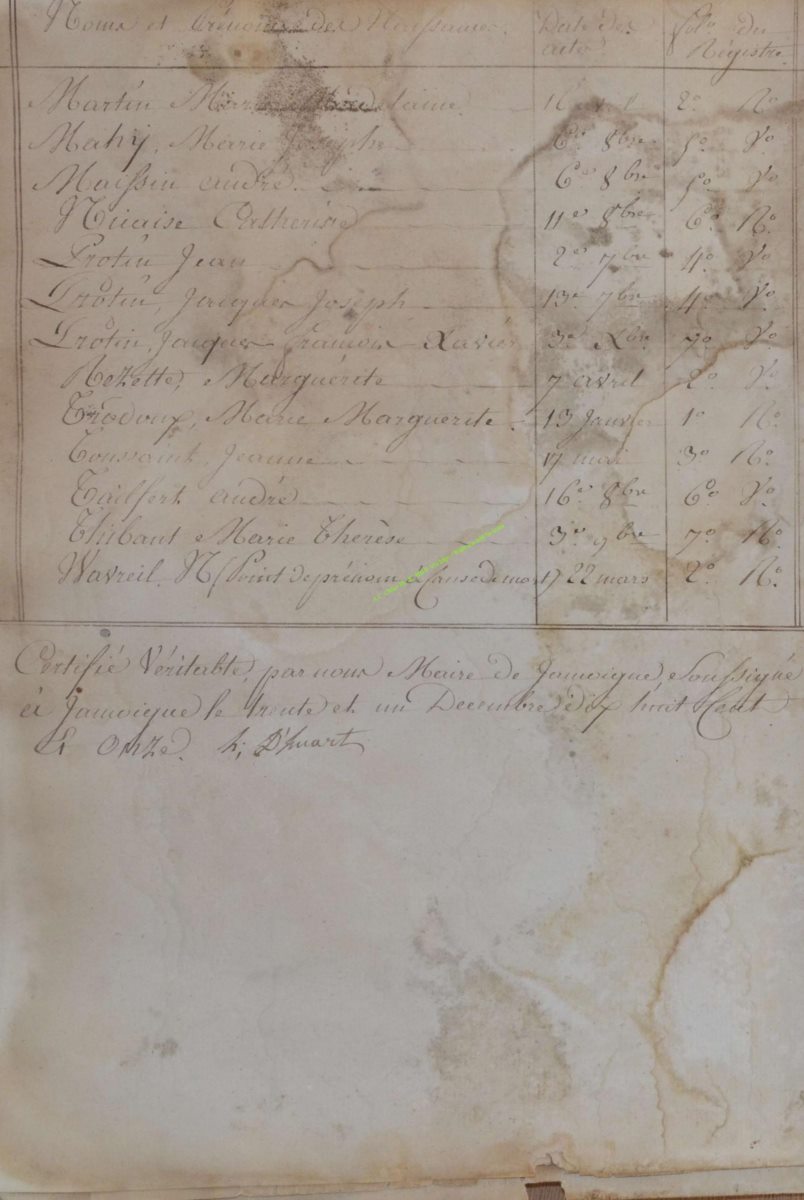 Noms et Prénoms des Naissances. Date des folo du
acte Registre
Martin Marie 2o. Ro.
Mahy, Marie Josephe 6e. 8bre 5o. Vo.
Maissin andré. 6e 8bre 5o. Vo.
Nicaise Catherine 11e 8bre 6o. Ro.
Protin Jean 2e 7bre 4o. Vo.
Protin, Jacques Joseph 13e 7bre 4o. Vo.
Protin, Jacques François Xavier 3e Xbre 7o. Vo.
Rezette, Marguérite 7 avril 2o. Vo.
Trodoux, Marie Marguerite. 13 Janvier 1o Ro.
Toussaint, Jeanne 17 mai 3o Ro.
Tailfert andré 16e 8bre 6o Vo.
Thibaut Marie Therèse 3e 9bre 7o. Ro.
Wavreil. N (Point de prénom à Cause de mort) 22 mars 2o. Ro.
Certifié Véritable, par nous Maire de Jamoigne, Soussigné
à Jamoigne le trente et un Decembre dix huit Cent
Et Onze. h; D'huart